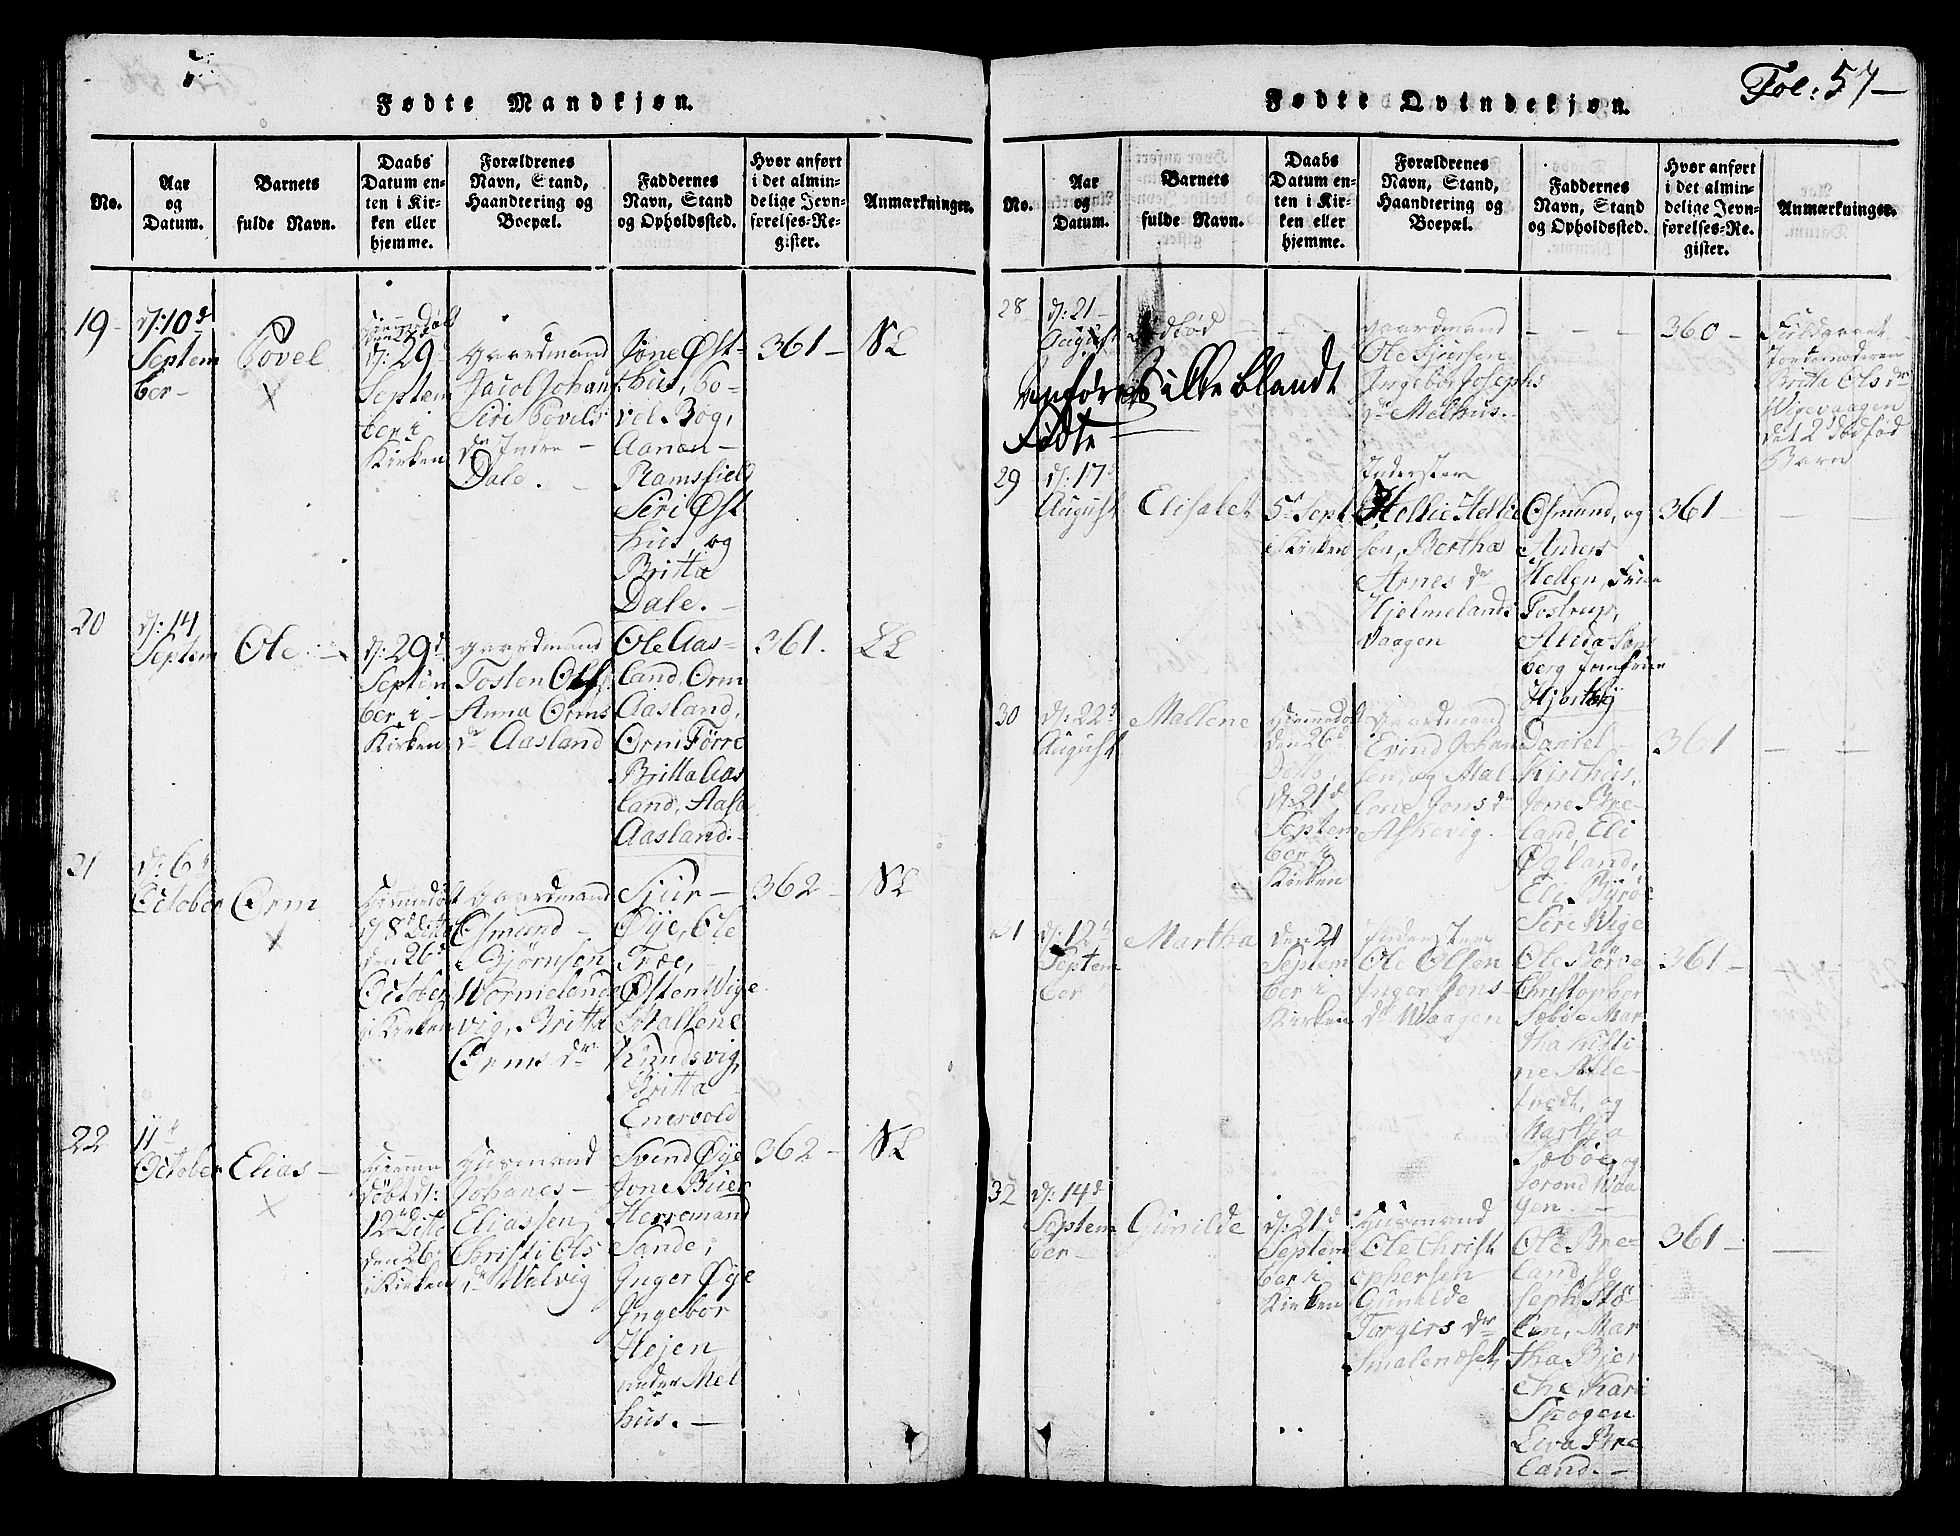 Fødte Mandkjøn.
No.
Aar
og
Datum.
Barnets
fulde Navn.
Daabs
Datum en-
ten i Kir-
ken eller
hjemme.
Forældrenes
Navn, Stand,
Haandtering og
Boepæl.
Faddernes
Navn, Stand
og Opholdssted.
Hvor anført
i det almin-
delige Jevn-
førelses-Re-
gister.
Anmærkninger.
19
d: 10d
Septem
ber
Povel
X
d: 29
Septem
ber i
Kirken
Gaardmand
Jacob Johans
Siri Povels
dr Indre
Dale.
Jone Øst-
hus, Po-
vel Bog,
Aanen
Ramsfield
Seri Øst
hus og
Britta
Dale.
361
NL
20
d: 14
Septem
Ole
d: 29d
Septem
ber i
Kirken
Gaardmand
Tosten Ols
Anna Orms
dr Aasland
Ole Aas-
land, Orm
Aasland,
Orm Førre
Britta Aas
land, Aasa
Aasland.
361.
LL
21
d: 6d
October
Orm
X
Hjemmedøbt
d 8d Ditto
den 26d
October
i Kirken
Gaardmand
Osmund
Bjørnsen
Wormelands
vig, Britta
Orms dr
Sjur
Øye, Ole
Træe,
Østen Wige
Mallene
Knudsvig,
Britta
Enersvold
362
NL
22
11d
October
Elias
X
Hjemme
døbt d:
12d Ditto
den 26d
i Kirken
Huusmand
Johanes
Eliassen
Christi Ols
dr Walvig
Svend Øye
Jone Buer
Herremand
Sande,
Inger Øye
Ingebor
Hejen
under Mel
hus.
362
NL
Fol: 57
Fødte Qvindekjøn.
No.
Aar
og
Datum.
Barnets
fulde Navn.
Daabs
Datum en-
ten i Kir-
ken eller
hjemme.
Forældrenes
Navn, Stand,
Haandtering og
Boepæl.
Faddernes
Navn, Stand
og Opholdssted.
Hvor anført
i det almin-
delige Jevn-
førelses-Re-
gister.
Anmærkninger.
28
d: 21
August
Dødfød
Gaardmand
Ole Sjursen
Ingebor Josephs
dr Melhus.
360
Fuldbaaret
Jordemoderen
Britta Ols dr
Wigevaagen
det 2d dødfød
Barn
anføres ikke blandt
Fødte
29
d: 17d
August
Elisabet
5d Sept
i Kirken
Indersten
Hellie Hellie
sen, Bertha
Arnes dr
Hjelmelands
Vaagen
Osmund, og
Anders
Hellen, Frue
Tostrup,
Alida
berg Jomfrue
Hjortkj
361
30
d: 22d
August
Mallene
Hjemmedøbt
den 26d
Ditto,
d: 21d
Septem
ber i
Kirken
Gaardmand
Evind Johan
sen, og Mal
lene Jons dr
Askevig.
Daniel
Kirchus,
Jone Bre-
land, Eli
Øgland,
Eli Byrøe
Sire Wige
361
31
d: 12d
Septem
ber
Martha
den 21
Septem
ber i
Kirken
Indersten
Ole Olsen
Inger Jons
dr Waagen
Ole Børve
Christopher
Sæbøe Mar
tha Kisti
ne Alle-
trædt, og
Martha
Sæbøe, og
Jorond Waa
gen.
361
32
d: 14d
Septem
ber
Gunilde
d: 21d
Septem
ber i
Kirken
Huusmand
Ole Christ
ophersen
Gunilde
Torgiers dr
Smalendset
Ole Bre-
land, Jo
seph Stø-
len, Mar
tha Bjer
che, Kari
Skogen
Eeva Bre
land.
361